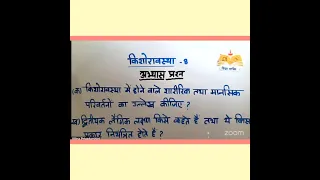 किशोरावस्था - 8
अभ्यास प्रश्न
(क) किशोरावस्था में होने वाले शारीरिक तथा मानसिक
परिवर्तनों का उल्लेख कीजिए ?
(ख) द्वितीयक लैंगिक लक्षण किसे कहते हैं तथा ये किस
प्रकार नियंत्रित होते हैं ?
zoom